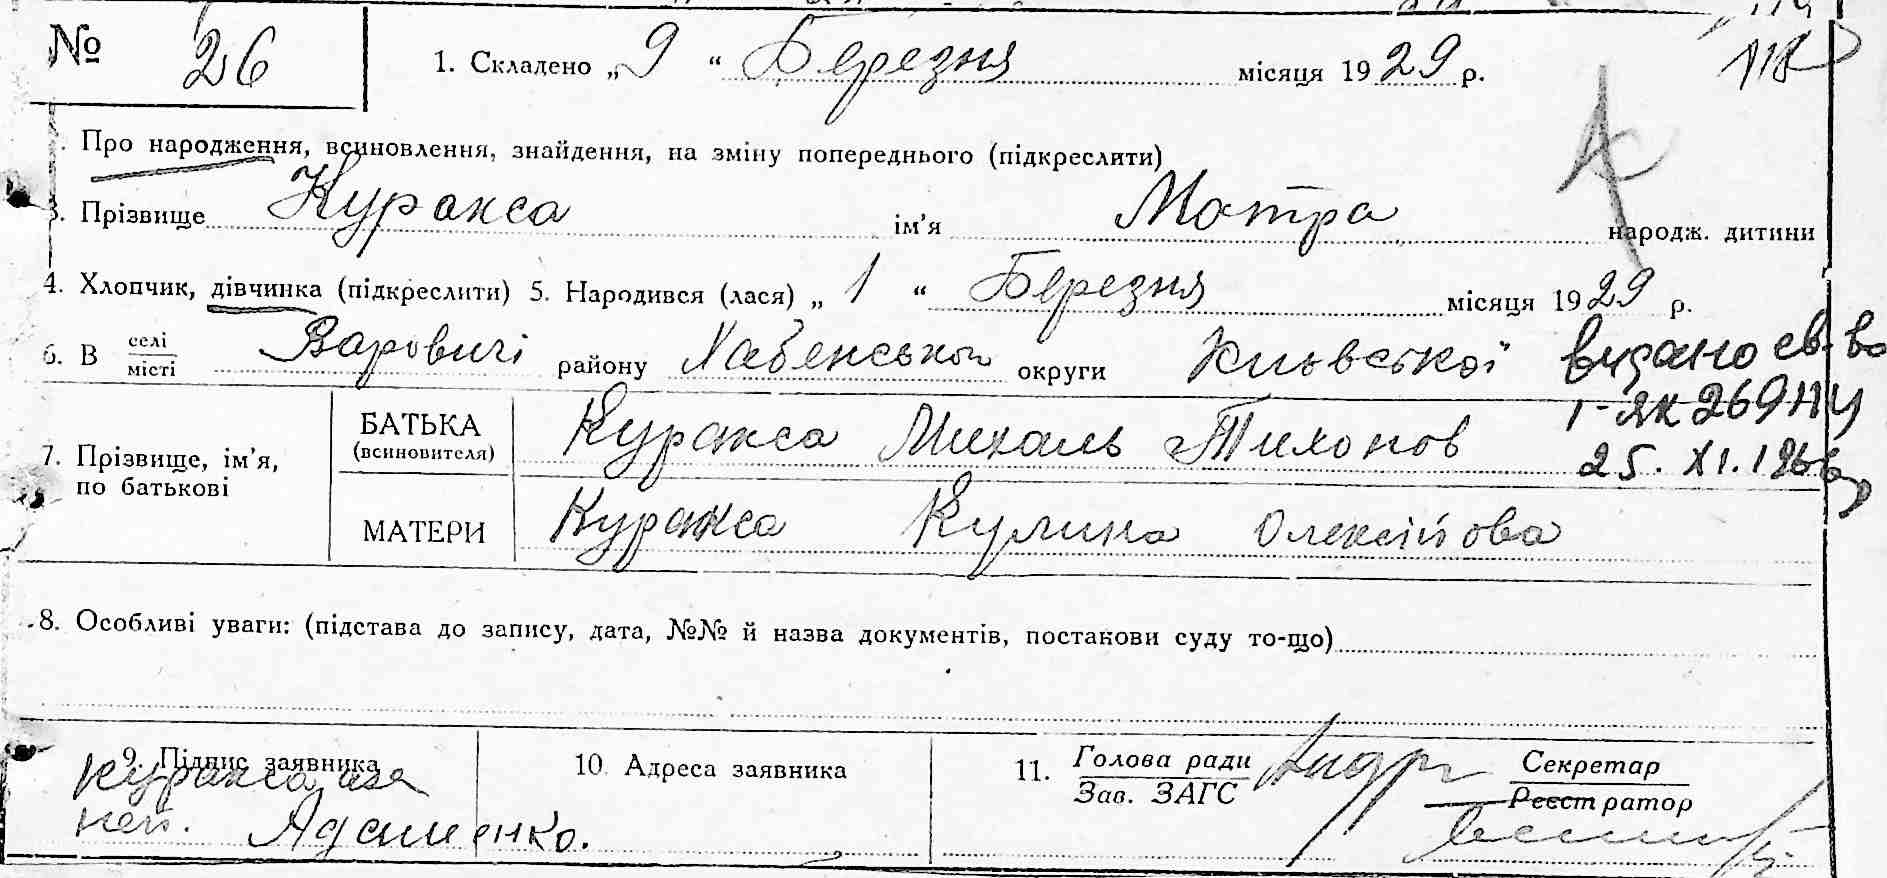 № 26 1. Складено „ 9 “ Березня місяця 1929 р. 118
. Про народження, всиновлення, знайдення, на зміну попереднього (підкреслити)
3. Прізвище Куракса ім’я Мотра народж. дитини
4. Хлопчик, дівчинка (підкреслити) 5. Народився (лася) „ 1 “ Березня місяця 1929 р.
6. В селі/місті Варовичі району Хабенського округи Київської видано св-во
І-ЯК 269114
25. XI. 1966р
7. Прізвище, ім’я, по батькові
БАТЬКА (всиновителя) Куракса Михаль Тихонов
МАТЕРИ Куракса Кулина Олексійова
8. Особливі уваги: (підстава до запису, дата, №№ й назва документів, постанови суду то-що)
9. Підпис заявника 10. Адреса заявника 11. Голова ради Секретар
Зав. ЗАГС Реєстратор
Куракса
Адаменко.